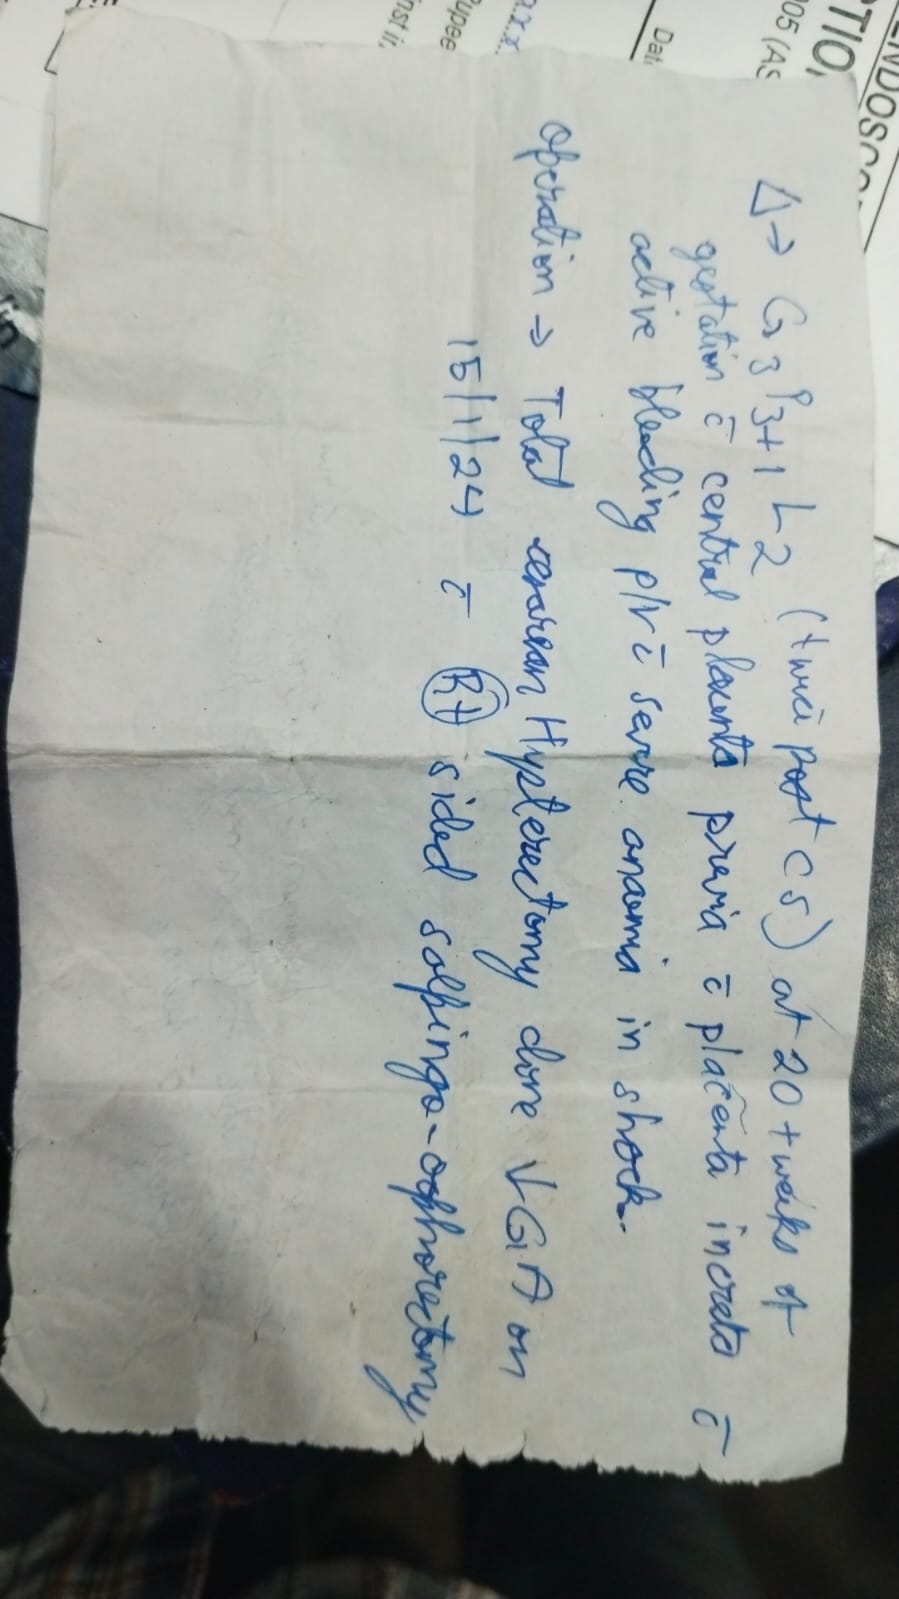 Δ→ G3 P3+1 L2 (twice post CS) at 20+weeks of
gestation c̄ central placenta previa c̄ placenta increta c̄
active bleeding p/v c̄ severe anaemia in shock.
operation → Total cesarean Hysterectomy done ↓ G.A on
15/1/24 c̄ Rt sided salpingo-oophorectomy
ENDOSCO
PTIO
005 (AS
Dat
x.x.
Rupee
nst